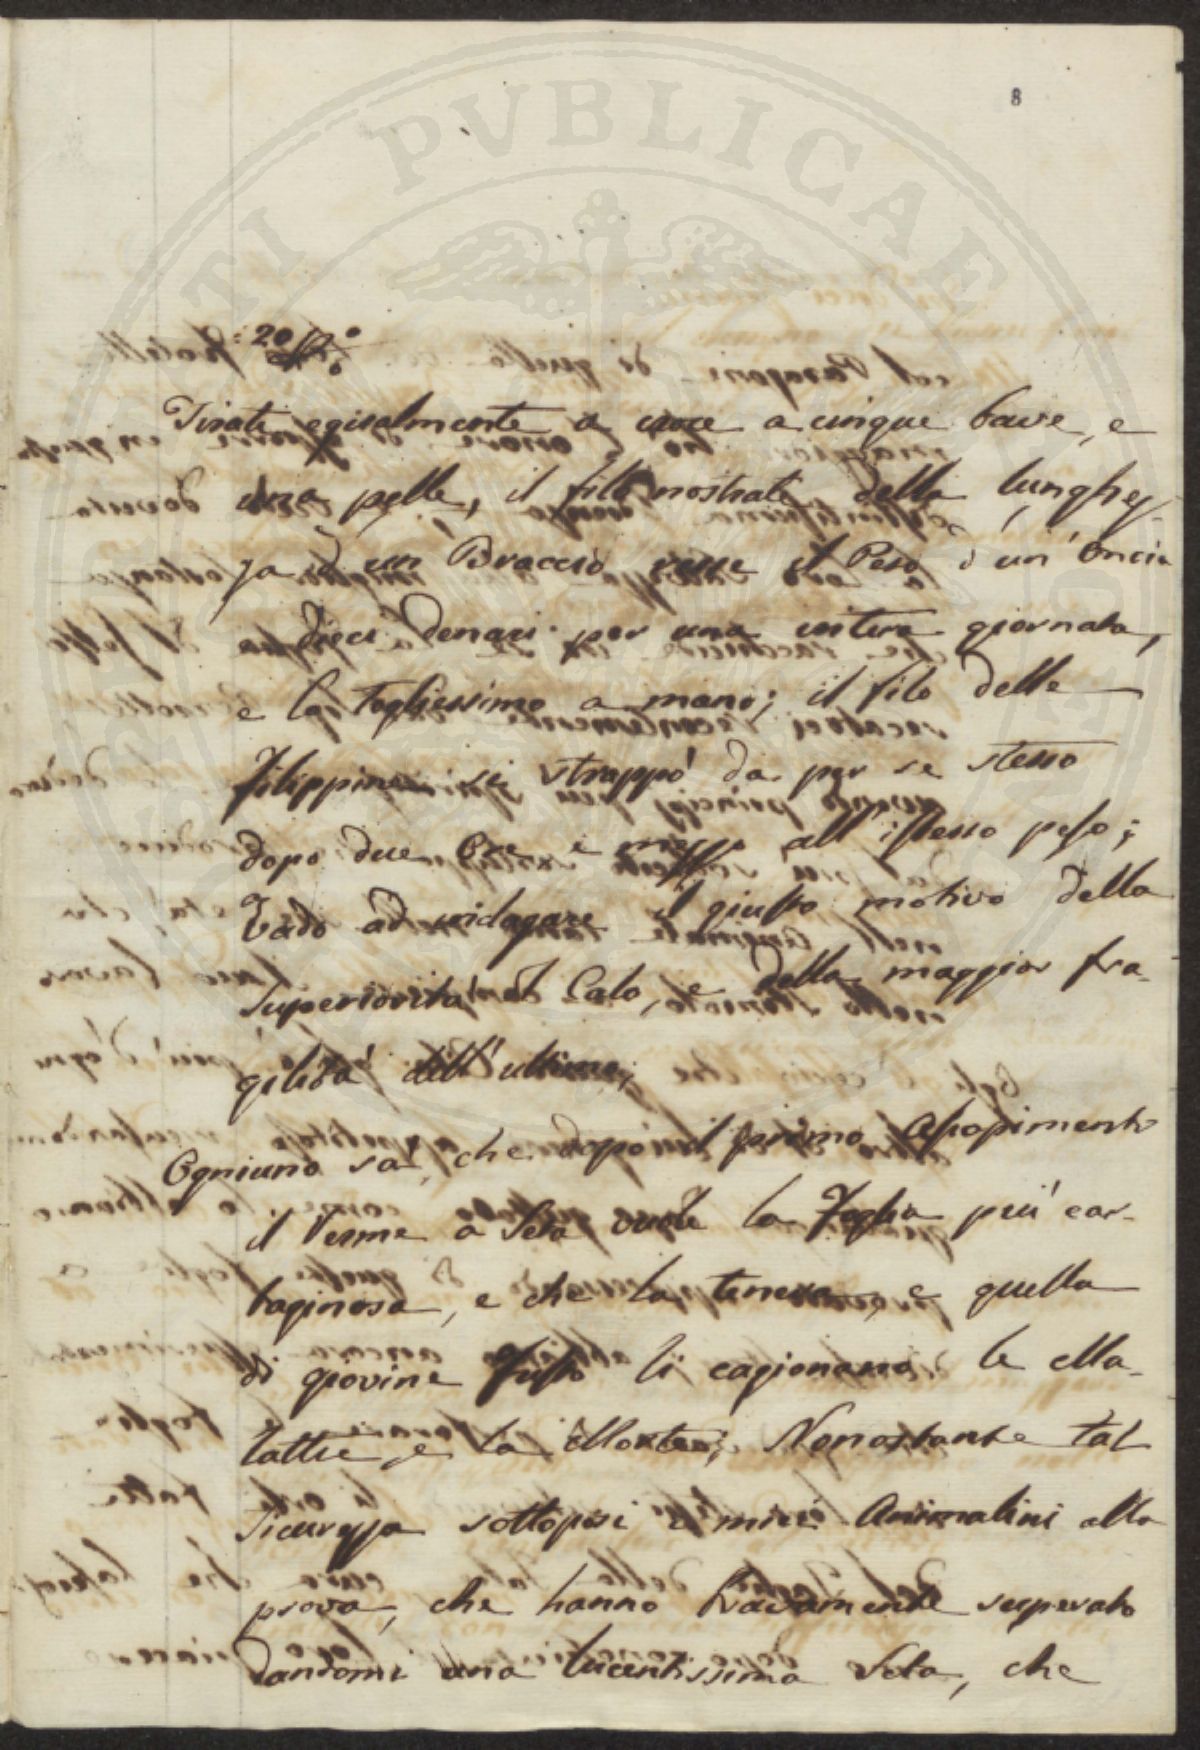 8
: 20
Tirati egualmente a croce a cinque bave, e
una pelle, il filo nostrale della lunghez
za d'un Braccio resse il Peso d'un' Oncia
e dieci denari per una intera giornata,
e lo togliessimo a mano; il filo delle
Filippine si strappò da per se stesso
dopo due Ore e mezza all'istesso peso;
Vado ad indagare il giusto motivo della
Superiorità, il Calo, e della maggior fra-
gilità dell'ultima;
Ogniuno sà, che dopo il primo Assopimento
il Verme a Seta vuole la Foglia più car-
taginosa, e che la tenera, e quella
di giovine fusto li cagionano le Ma-
lattie, e la Morte; Nonostante tal
Sicurezza sottoposi i miei Animalini alla
prova, che hanno bravamente superato
dandomi una lucentissima Seta, che